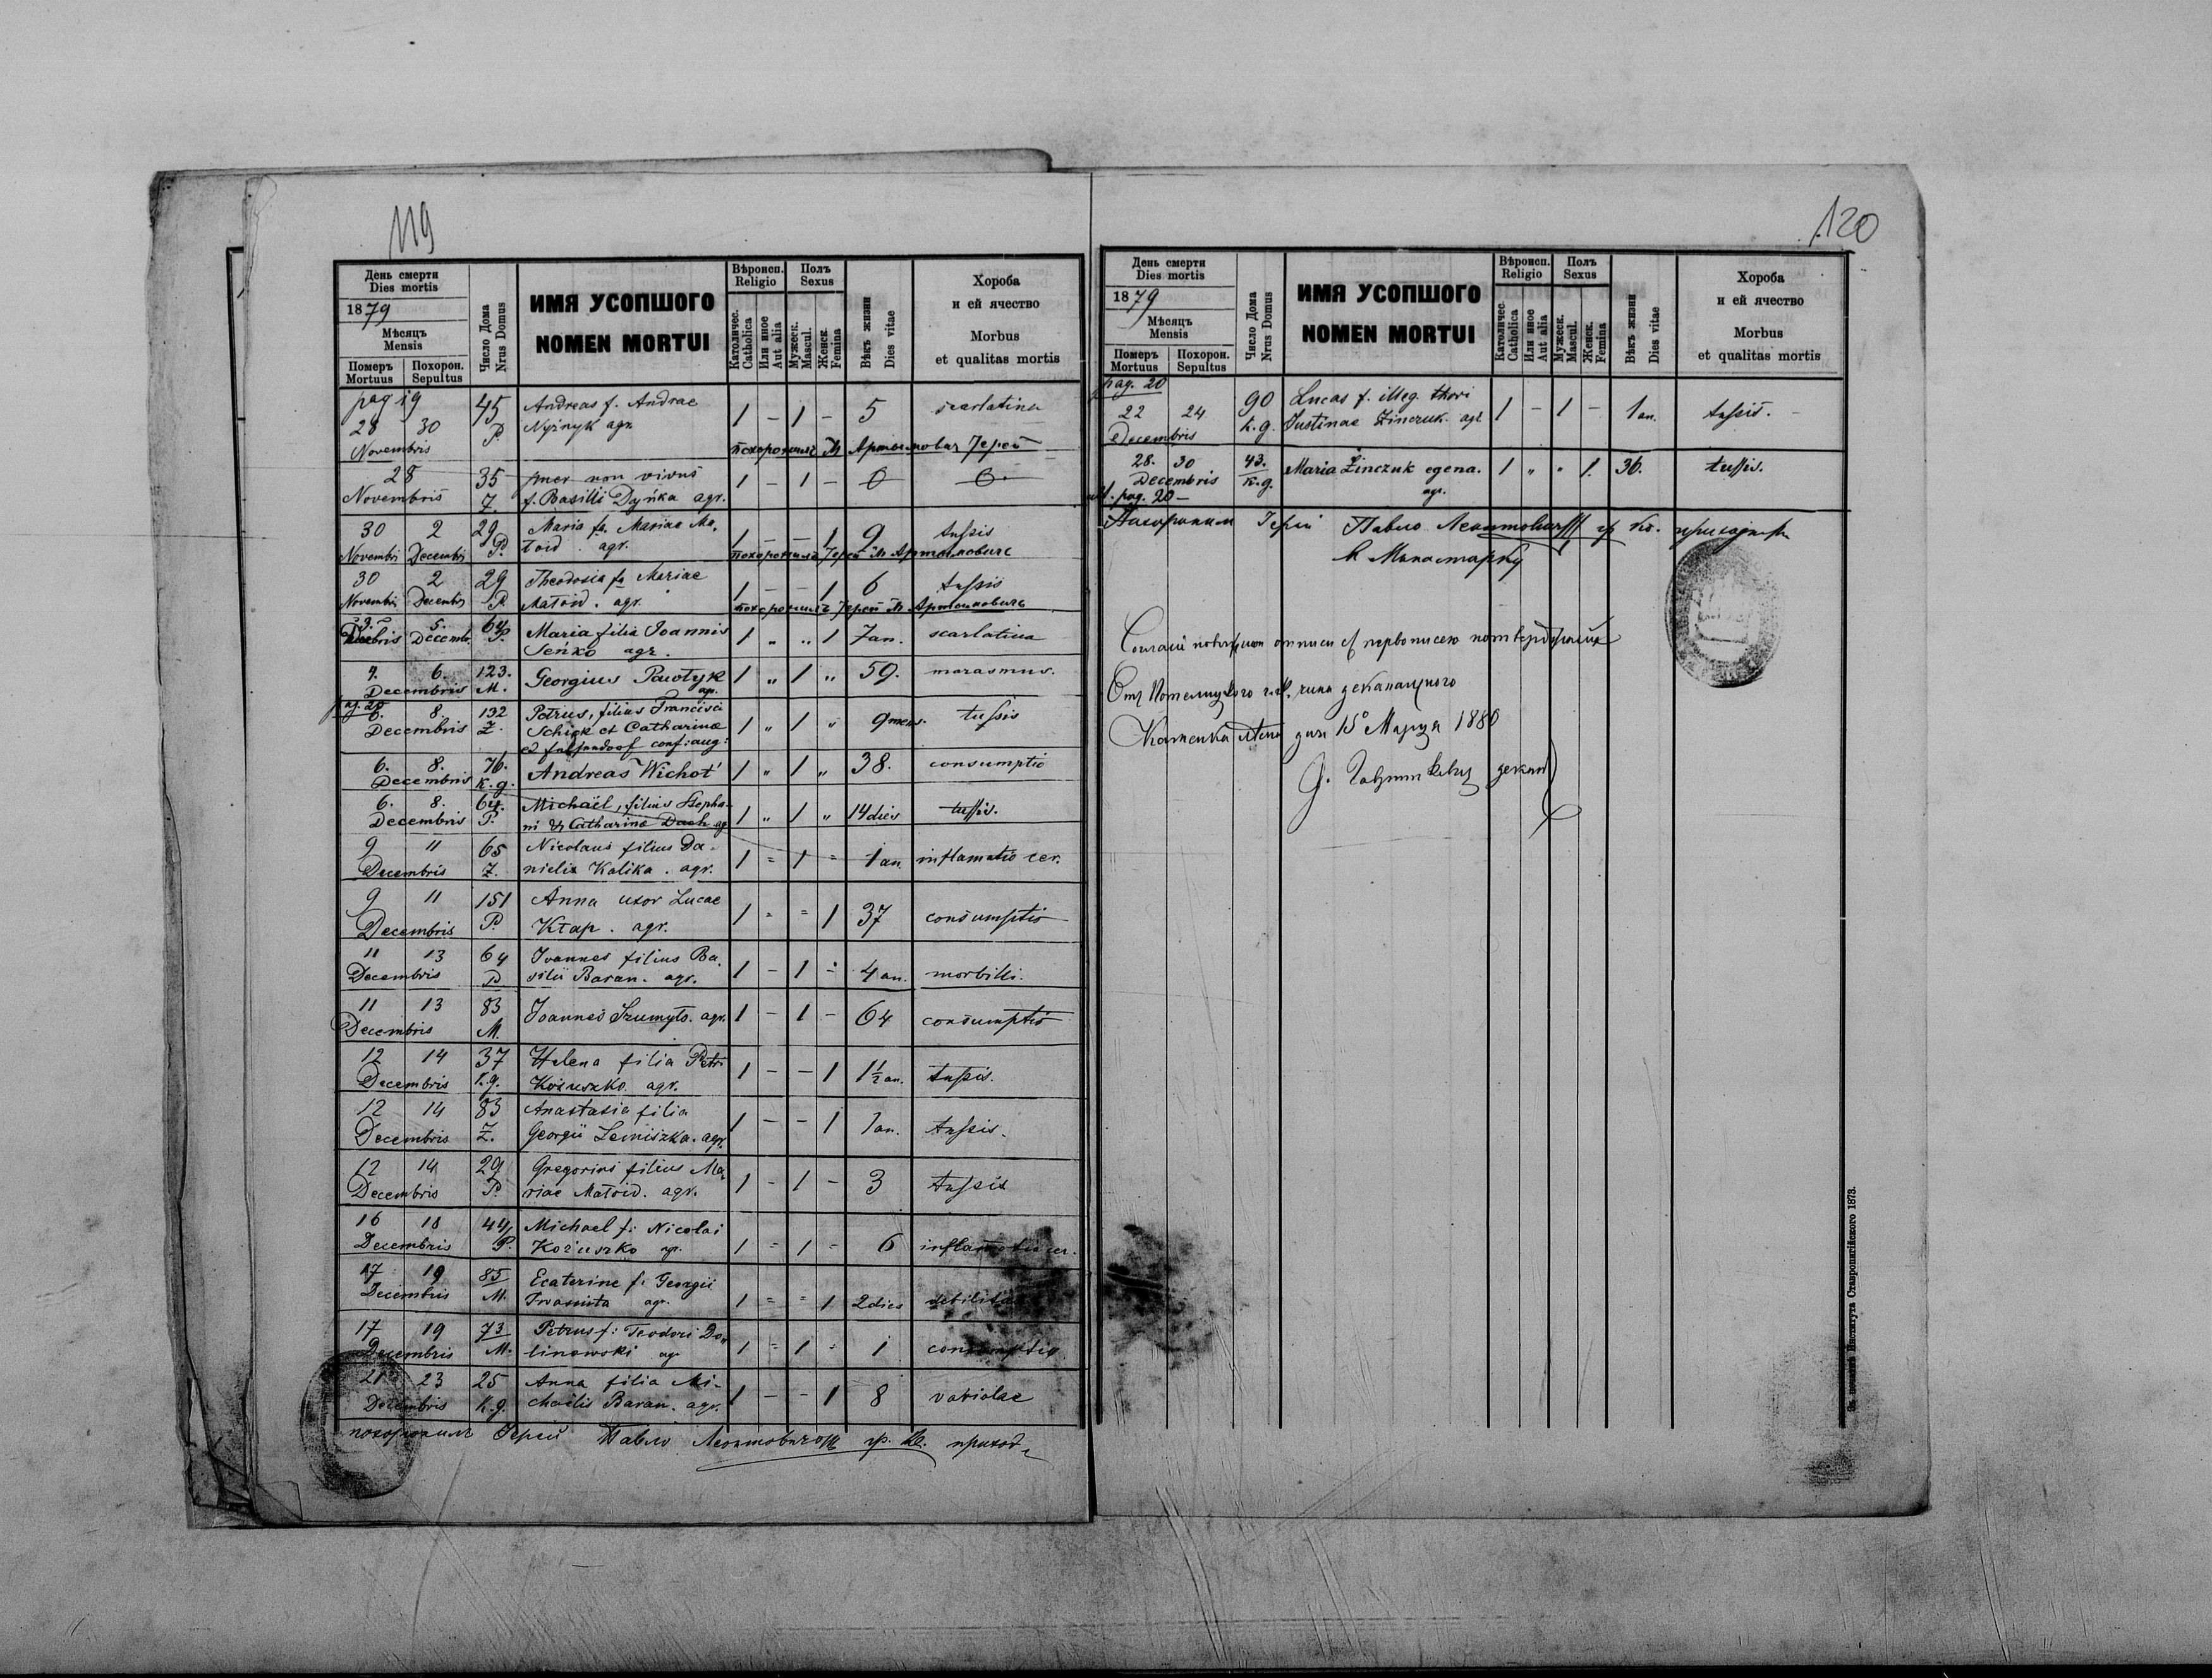 119
День смерти
Dies mortis
1879
Мѣсяцъ
Mensis
Померъ Mortuus
Похорон. Sepultus
Число Дома
Nrus Domus
ИМЯ УСОПШОГО
NOMEN MORTUI
Вѣроисп.
Religio
Католичес. Catholica
Или иное Aut alia
Полъ
Sexus
Мужеск. Mascul.
Женск. Femina
Вѣкъ жизни
Dies vitae
Хороба
и ей ячество
Morbus
et qualitas mortis
pag 19
28 30 Novembris 45 P. Andreas f. Andrae
agr. 1 – 1 – 5 scarlatina
похоронилъ М Артымовичъ Іерей
28 Novembris 35 Z. puer non vivus
f. Basilii Dyńka agr. 1 – 1 – 0 0
30 Novembri 2 Decembri 29 P. Maria fa Mariae Ma-
toid. agr. 1 – – 1 9 tussis
похоронилъ Іерей М Артымовичъ
30 Novembri 2 Decembri 29 P. Theodosia fa Mariae
Matoid. agr. 1 – – 1 6 tussis
похоронилъ Іерей М Артымовичъ
3. Decbris 5. Decemb. 64 P. Maria filia Joannis
Seńko agr. 1 „ „ 1 7 an. scarlatina
4. 6. Decembris 123. M. Georgius Pawłyk
agr. 1 „ 1 „ 59. marasmus.
pag. 20
6. 8. Decembris 132 Z. Petrus, filius Francisci
Schick et Catharinae
conf: aug: 1 „ 1 „ 9 mens. tussis
6. 8. Decembris 76. K. g. Andreas Wichot 1 „ 1 „ 38. consumptio
6. 8. Decembris 64. P. Michaël, filius Stepha-
ni & Catharinae Dach agr 1 „ 1 „ 14 dies tussis.
9 11 Decembris 65 Z. Nicolaus filius Da-
nielis Kalika. agr. 1 = 1 = 1 an. inflamatio cer.
9 11 Decembris 151 P. Anna uxor Lucae
Kłap. agr. 1 = = 1 37 consumptio
11 13 Decembris 64 P Joannes filius Ba-
silii Baran. agr. 1 – 1 – 4 an. morbilli.
11 13 Decembris 83 M. Joannes Szumyło. agr. 1 – 1 – 64 consumptio
12 14 Decembris 37 K.g. Helena filia Petri
Kożuszko. agr. 1 – – 1 1½ an. tussis.
12 14 Decembris 83 Z. Anastasia filia
Georgii Lemiszka. agr. 1 – – 1 1 an. tussis.
12 14 Decembris 29 P. Gregorius filius Ma-
riae Matoid. agr. 1 – 1 – 3 tussis
16 18 Decembris 44 P. Michael f: Nicolai
Kożuszko agr. 1 = 1 = 6 inflamatio cer.
17 19 Decembris 85 M. Ecaterine f: Georgii
agr. 1 = = 1 2 dies debilitas
17 19 Decembris 73 M. Petrus f: Teodori Do-
linowski agr 1 = 1 = 1 consumptio
21 23 Decembris 25 K.g. Anna filia Mi-
chaëlis Baran. agr. 1 – – 1 8 variolae
похоронилъ Іерей Павло Леонтовичъ гр. к. приход.
120
День смерти
Dies mortis
1879
Мѣсяцъ
Mensis
Померъ Mortuus
Похорон. Sepultus
Число Дома
Nrus Domus
ИМЯ УСОПШОГО
NOMEN MORTUI
Вѣроисп.
Religio
Католичес. Catholica
Или иное Aut alia
Полъ
Sexus
Мужеск. Mascul.
Женск. Femina
Вѣкъ жизни
Dies vitae
Хороба
и ей ячество
Morbus
et qualitas mortis
pag. 20
22 24 Decembris 90 K. g. Lucas f. illeg. thori
Justinae Zinczuk. agr. 1 – 1 – 1 an. tussis.
28. 30 Decembris 43. K. g. Maria Zinczuk egena.
agr. 1 „ „ 1. 36. tussis.
ult. pag. 20 –
Похоронилъ Іерей Павло Леонтовичъ гр кт.
в Манастирку
Каменка дня 15 Марця 1880
декан
Въ печатнѣ Института Ставропигійского 1873.